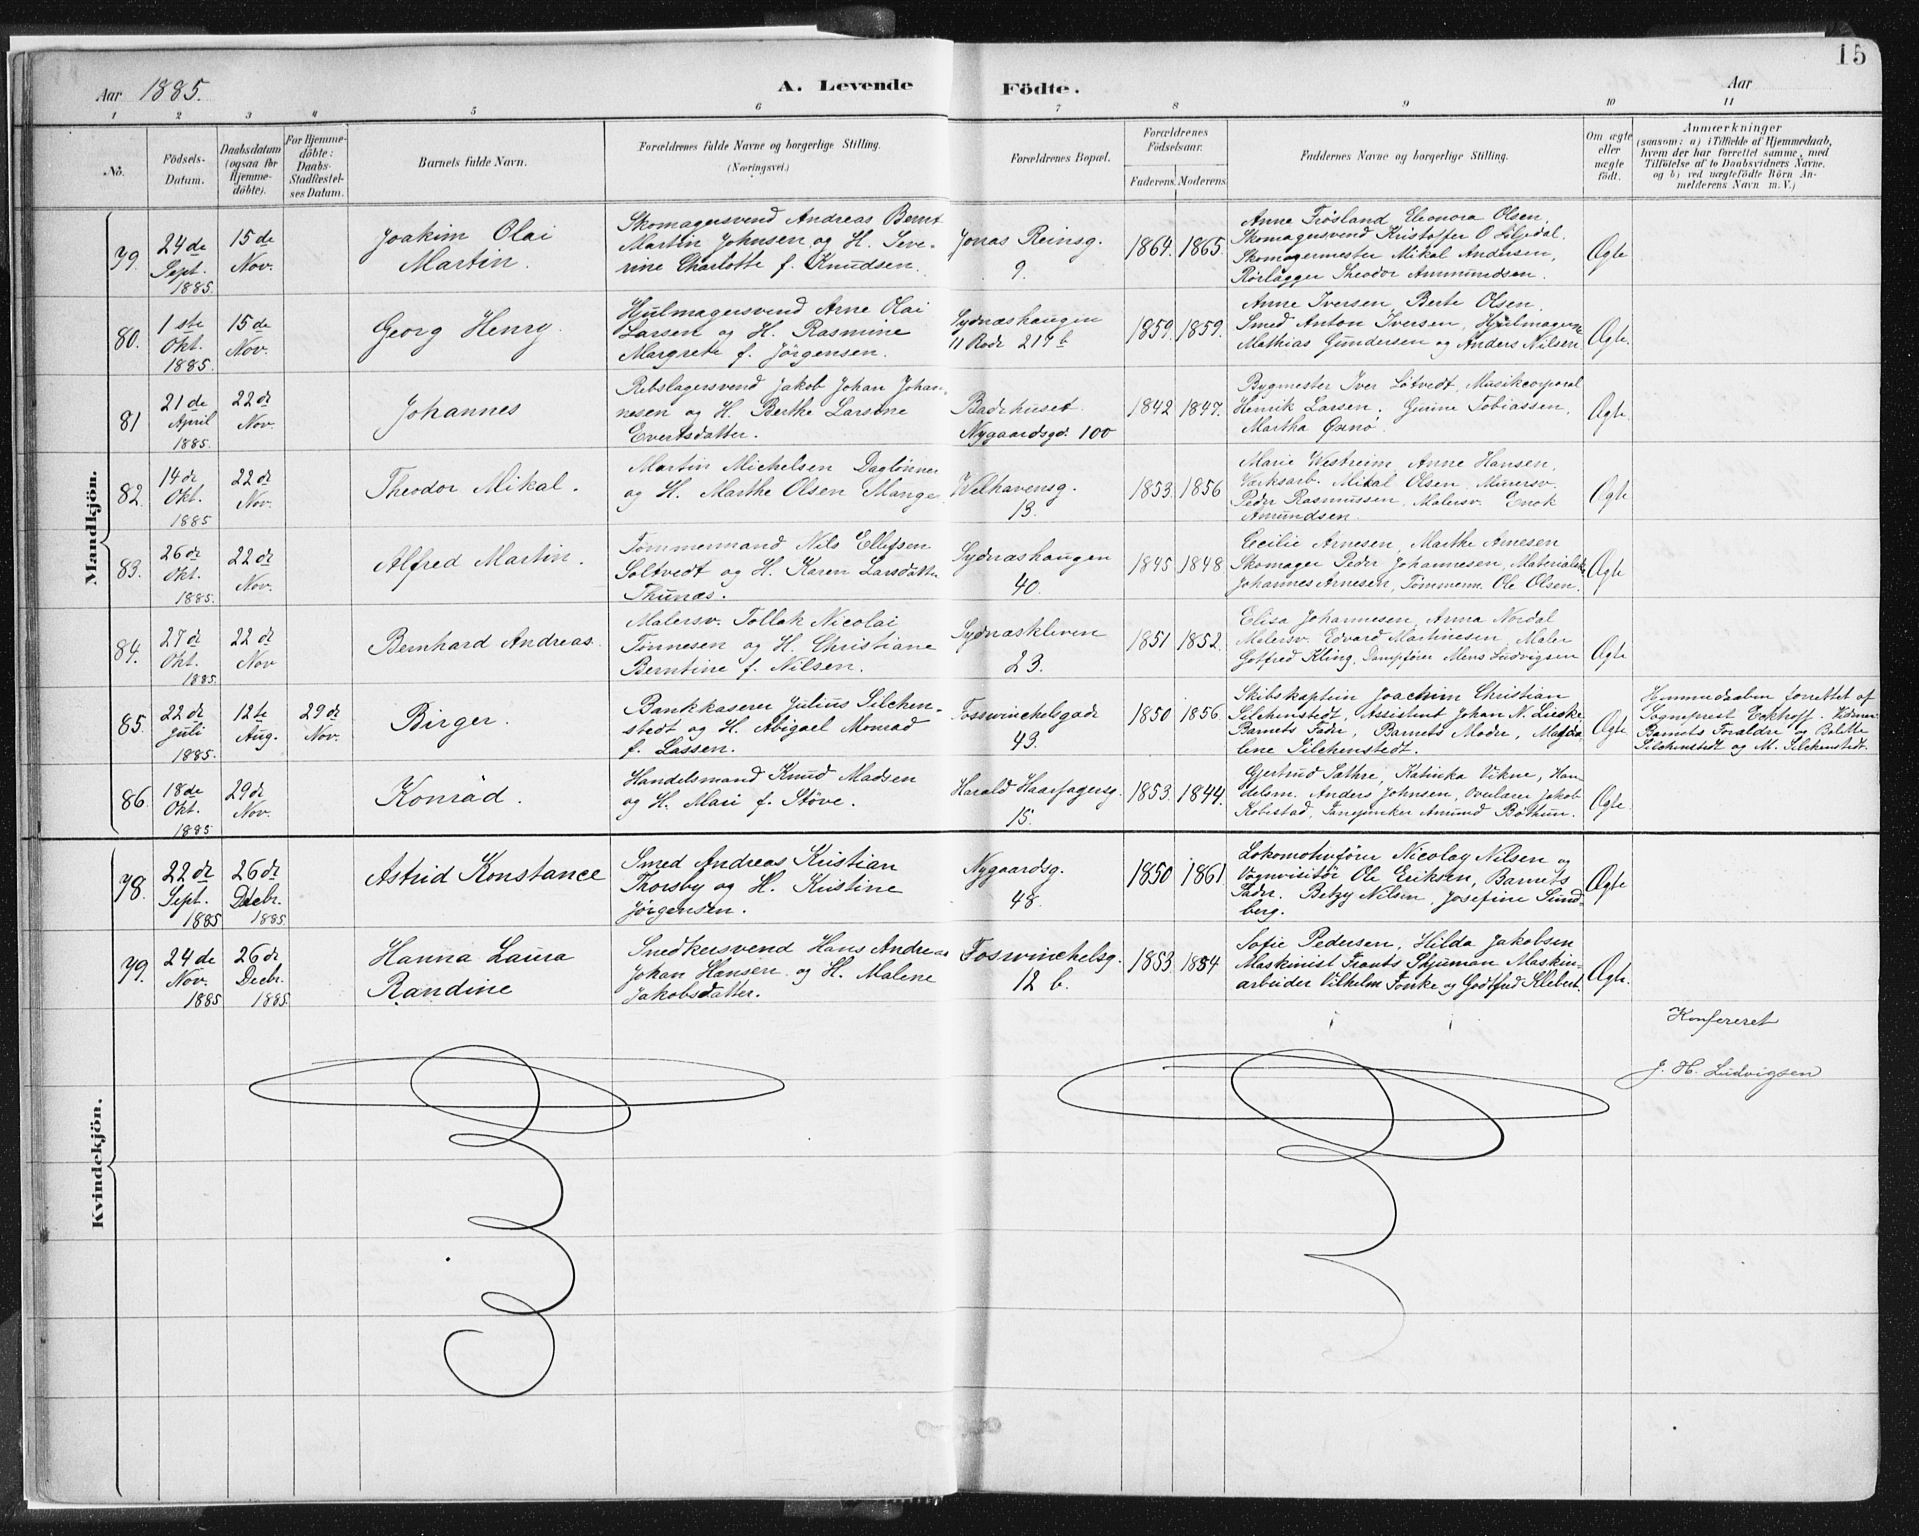 15
Aar 1885. A. Levende Födte. Aar
1 2 3 4 5 6 7 8 9 10 11
No.
Födsels-Datum.
Daabsdatum (ogsaa for Hjemmedöbte).
For Hjemmedöbte: Daabs-Stadfæstelses Datum.
Barnets fulde Navn.
Forældrenes fulde Navne og borgerlige Stilling.
(Næringsvei.)
Forældrenes Bopæl.
Forældrenes Födselsaar.
Faderens. Moderens.
Faddernes Navne og borgerlige Stilling.
Om ægte eller uægte födt.
Anmærkninger
(saasom: a) i Tilfælde af Hjemmedaab, hvem der har forrettet samme, med Tilföielse af to Daabsvidners Navne, og b) ved uægtefödte Börn Anmelderens Navn m. V.)
Mandkjön.
79. 24de Sept. 1885. 15de Nov.
Joakim Olai
Martin.
Skomagersvend Andreas Bernt
Martin Johnsen og H. Seve-
rine Charlotte f. Knudsen.
Jonas Reinsg.
9.
1864. 1865.
Anne Frøsland, Eleonora Olsen,
Skomagersvend Kristoffer O Liljedal.
Skomagermester Mikal Andersen,
Rørlægger Theodor Ammundsen.
Ægte
80. 1ste Okt. 1885. 15de Nov.
Georg Henry.
Hjulmagersvend Arne Olai
Larsen og H. Rasmine
Margrete f. Jörgensen.
Sydnæshaugen
11 Rode 217 b
1859. 1859.
Anne Iversen, Berte Olsen.
Smed Anton Iversen, Hjulmagerne
Mathias Gundersen og Anders Nilsen
Ægte.
81 21de April 1885. 22de Nov.
Johannes
Rebslagersvend Jakob Johan Johan-
nesen og H. Berthe Larsine
Evertsdatter.
Badehuset
Nygaardsgd. 100
1842 1847.
Bygmester Iver Løtvedt, Musikcorporal
Henrik Larsen. Gurine Tobiassen,
Martha
Ægte.
82. 14de Okt. 1885 22de Nov.
Theodor Mikal.
Martin Michelsen Daglønner
og H. Marthe Olsen Mange
Welhavensg.
13.
1853. 1856
Marie Westreim, Anne Hansen,
Værksarb. Mikal Olsen, Murersv.
Peder Rasmussen, Malersv. Enok
Amundsen.
Ægte
83. 26de Okt. 1885. 22de Nov.
Alfred Martin.
Tømmermand Nils Ellefsen
Soltvedt og H. Karen Larsdatter
Thunæs.
Sydnæshaugen
40.
1845 1848
Cecilie Arnesen, Marthe Arnesen
Skomager Peder Johannesen,
Johannes Arnesen, Tømmerm. Ole Olsen.
Ægte
84. 27de Okt. 1885. 22de Nov
Bernhard Andreas.
Malersv. Tollak Nicolai
Tönnesen og H. Christiane
Berntine f. Nilsen.
Sydnæskleven
23.
1851 1852.
Elisa Johannesen, Anna Nordal
Malersv. Edvard Martinesen, Maler
Gotfred Kling, Dampfører Mons Ludvigsen
Ægte
85. 22de Juli 1885. 12te Aug. 29de Nov.
Birger.
Bankkaserer Julius Silchen-
stedt og H. Abigael Monrad
f. Lassen.
Fosswinckelsgade
43.
1850 1856.
Skibskaptein Joachim Christian
Silchenstedt, Assistent Johan N. Liedke
Barnets Fader, Barnets Moder, Magda-
lene Silchenstedt.
Ægte.
Hjemmedaaben forrettet af
Sogneprest Eckhoff. Vidner
Barnets Forældre og Bolette
Silchenstedt og M. Silchenstedt.
86. 18de Okt. 1885 29de Nov.
Konrad.
Handelsmand Knud Madsen
og H. Mari f. Støve.
Harald Haarfagersg.
15.
1853. 1844.
Gjertrud Sathre, Katinka Vikne, Han-
delsm. Anders Johnsen, Overlærer Jakob
Kobestad, Fanejunker Amund Bøthun.
Ægte.
Kvindekjön.
78. 22de Sept. 1885 26de Decbr. 1885
Astrid Konstance
Smed Andreas Kristian
Thorsby og H. Kristine
Jørgensen.
Nygaardsg.
48.
1850 1861
Lokomotivfører Nicolay Nilsen og
Vognvisitör Ole Eriksen, Barnets
Fader. Betzy Nilsen, Josefine Sund-
berg.
Ægte
79. 24de Nov. 1885 26de Decbr. 1885.
Hanna Laura
Randine
Snedkersvend Hans Andreas
Johan Hansen og H. Malene
Jakobsdatter.
Fosswinckelsg.
12 b.
1853. 1854
Sofie Pedersen, Hilda Jakobsen
Maskinist Frants Skjuman Maskin-
arbeider Vilhelm Fonke og Godtfred Klebert.
Ægte.
Konfereret
J. H. Ludvigsen